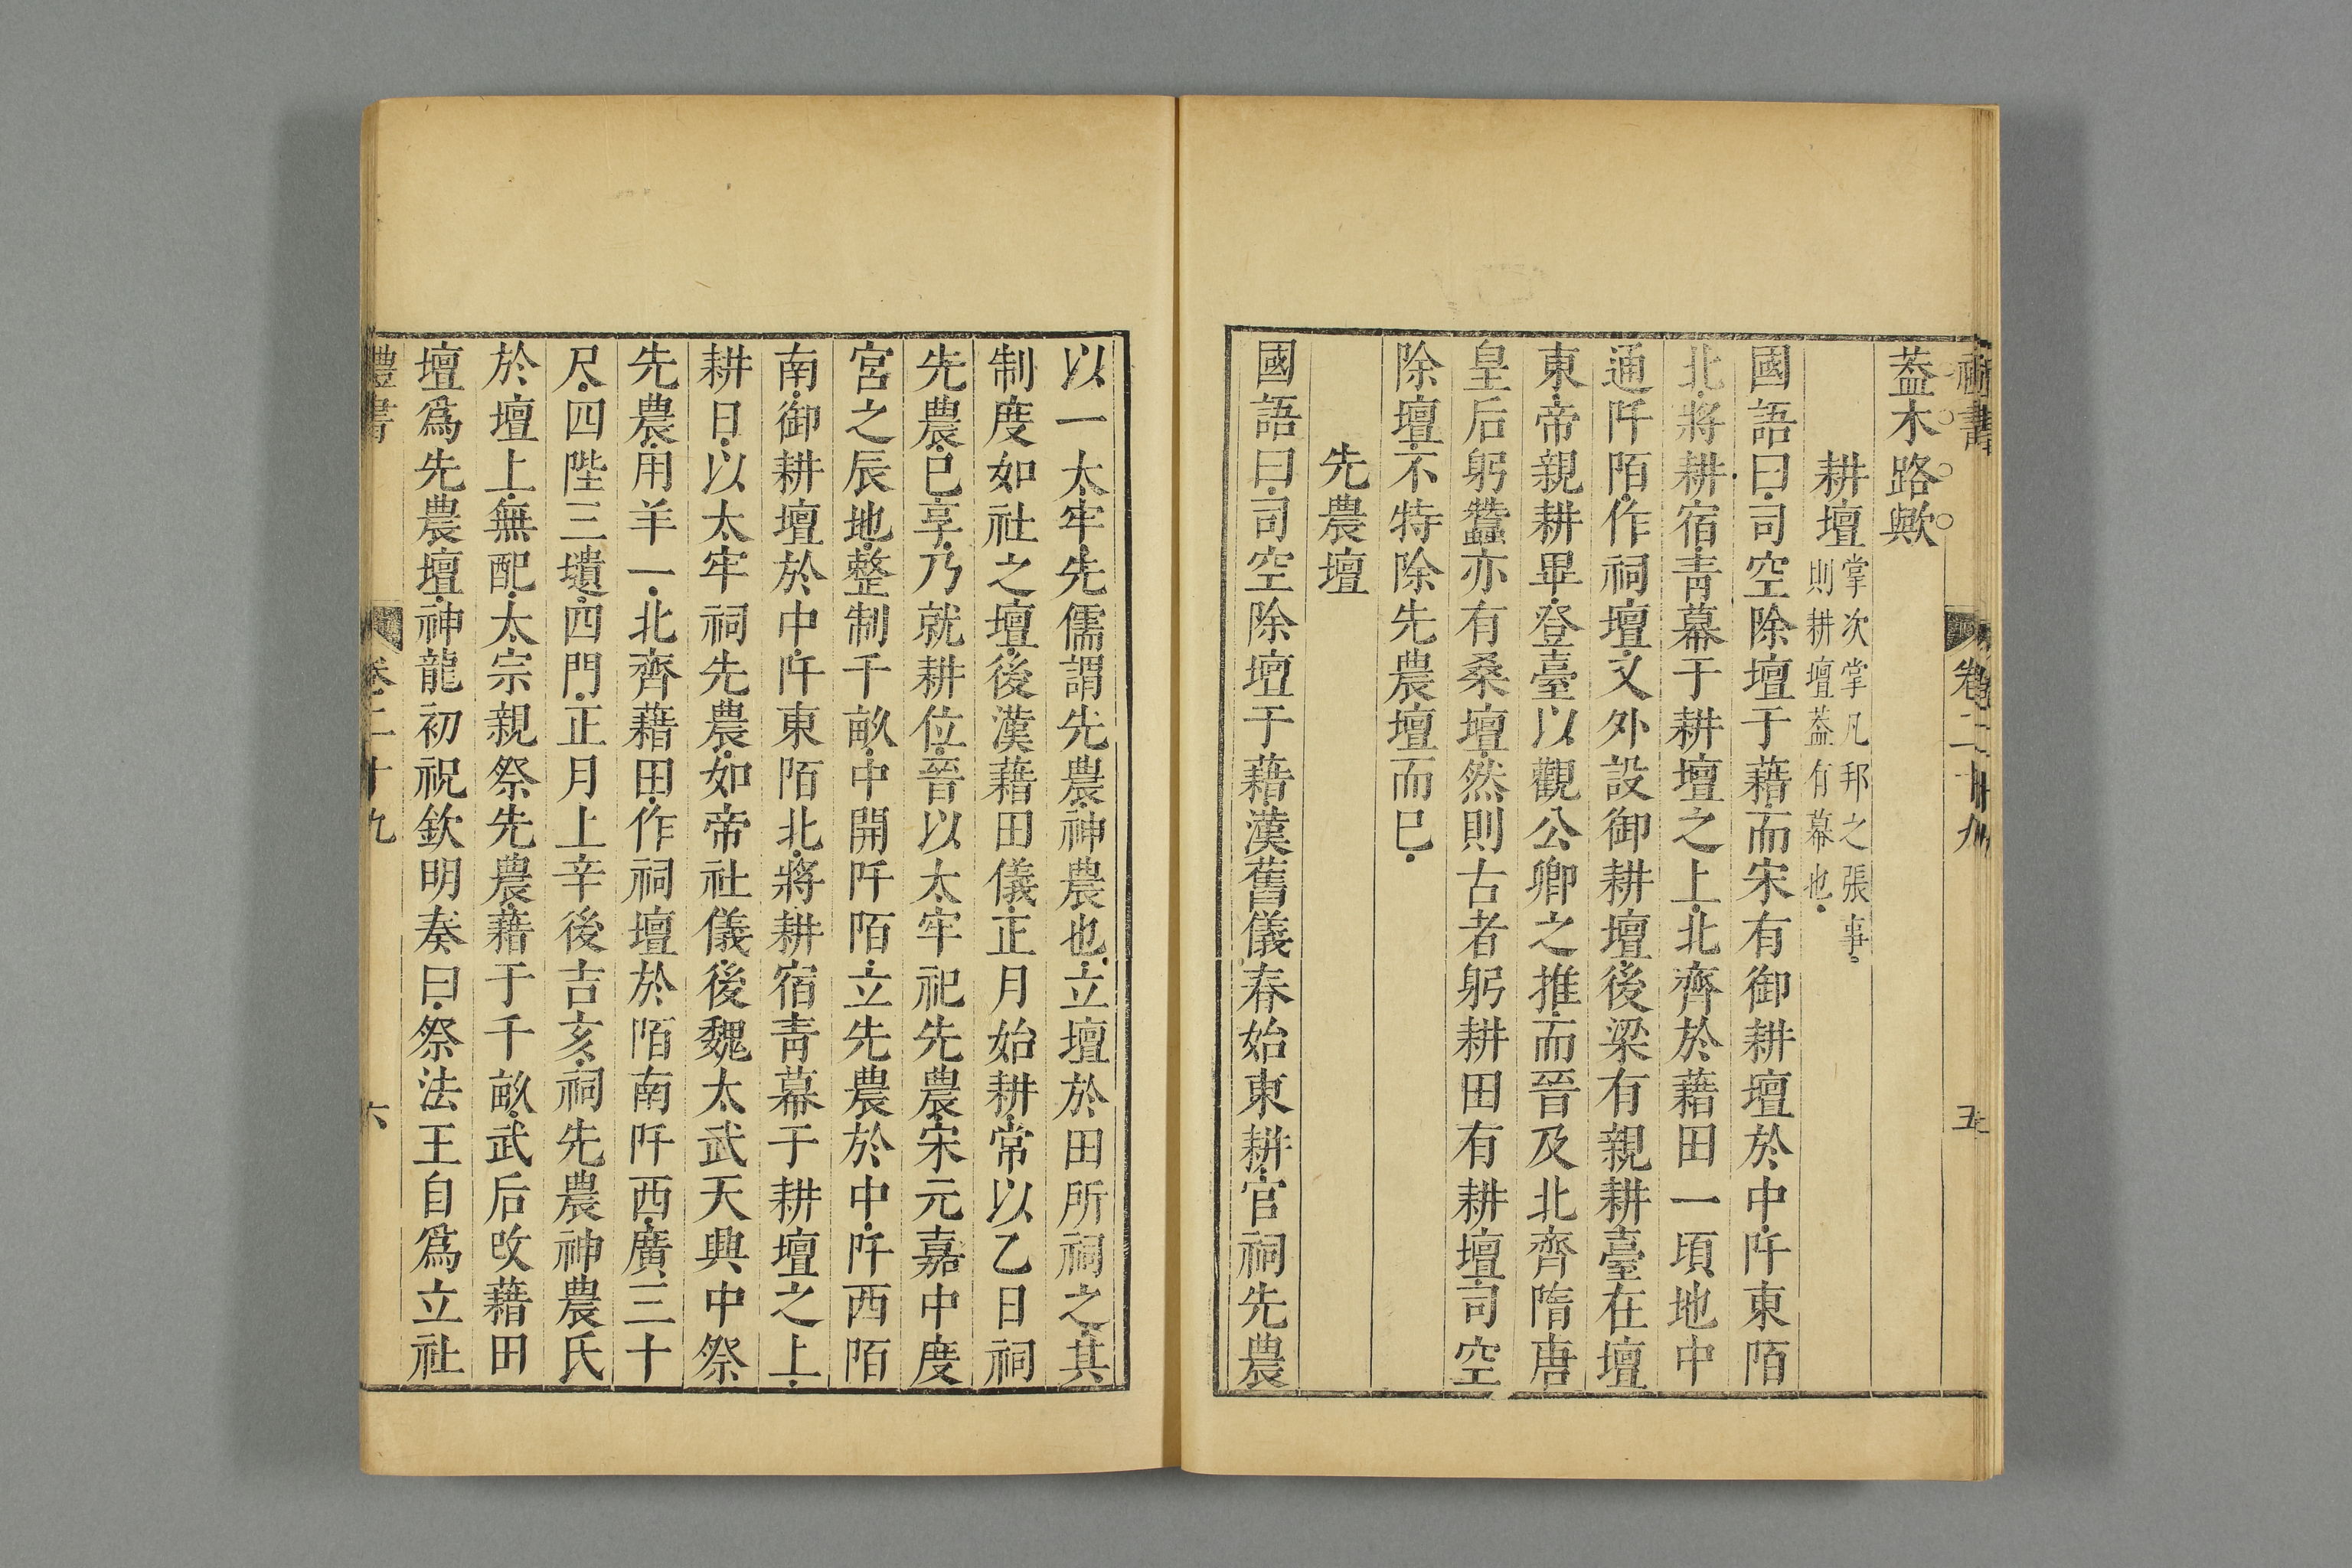 禮書 卷二十九 五
葢木路歟
耕壇掌次掌凡邦之張事。則耕壇葢有幕也
國語曰司空除壇于藉而宋有御耕壇於中阡東陌
北將耕宿靑幕于耕壇之上北齊於藉田一頃地中
通阡陌作祠壇又外設御耕壇後梁有親耕臺在壇
東帝親耕畢登臺以觀公卿之推而晉及北齊隋唐
皇后躬蠶亦有桑壇然則古者躬耕田有耕壇司空
除壇不特除先農壇而已
先農壇
國語曰司空除壇于藉漢舊儀春始東耕官祠先農
以一太牢先儒謂先農神農也立壇於田所祠之其
制度如社之壇後漢藉田儀正月始耕常以乙日祠
先農已享乃就耕位晉以太牢祀先農宋元嘉中度
宮之辰地整制千畝中開阡陌立先農於中阡西陌
南御耕壇於中阡東陌北將耕宿靑幕于耕壇之上
耕日以太牢祠先農如帝社儀後魏太武天興中祭
先農用羊一北齊藉田作祠壇於陌南阡西廣三十
尺四陛三壝四門正月上辛後吉亥祠先農神農氏
於壇上無配太宗親祭先農藉于千畝武后改藉田
壇爲先農壇神龍初祝欽明奏曰祭法王自爲立社
禮書 卷二十九 六